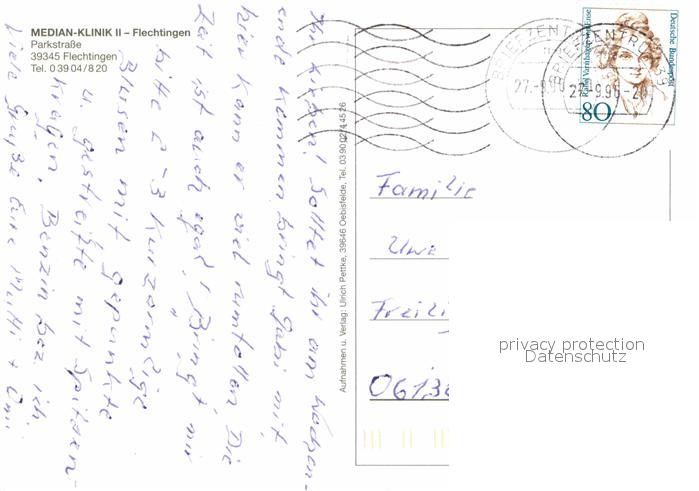 MEDIAN-KLINIK II – Flechtingen
Parkstraße
39345 Flechtingen
Tel. 0 39 04 / 8 20
Ihr Lieben! Solltet ihr am Wochen-
ende kommen bringt Gabi mit
hier kann er viel rumtollen. Die
Zeit ist auch egal! Bringt mir
bitte 2-3 kurzärmlige
Blusen mit gepunktete
u. gestreifte mit Spitzen-
kragen. Benzin bez. ich.
Viele Grüße Eure Mutti + Omi
Aufnahmen u. Verlag: Ulrich Pettke, 39646 Oebisfelde, Tel. 039002/44526
BRIEFZENTRUM 39
27.-9.96
Rahel Varnhagen von Ense
Deutsche Bundespost
80
Familie
Uwe
privacy protection
Datenschutz